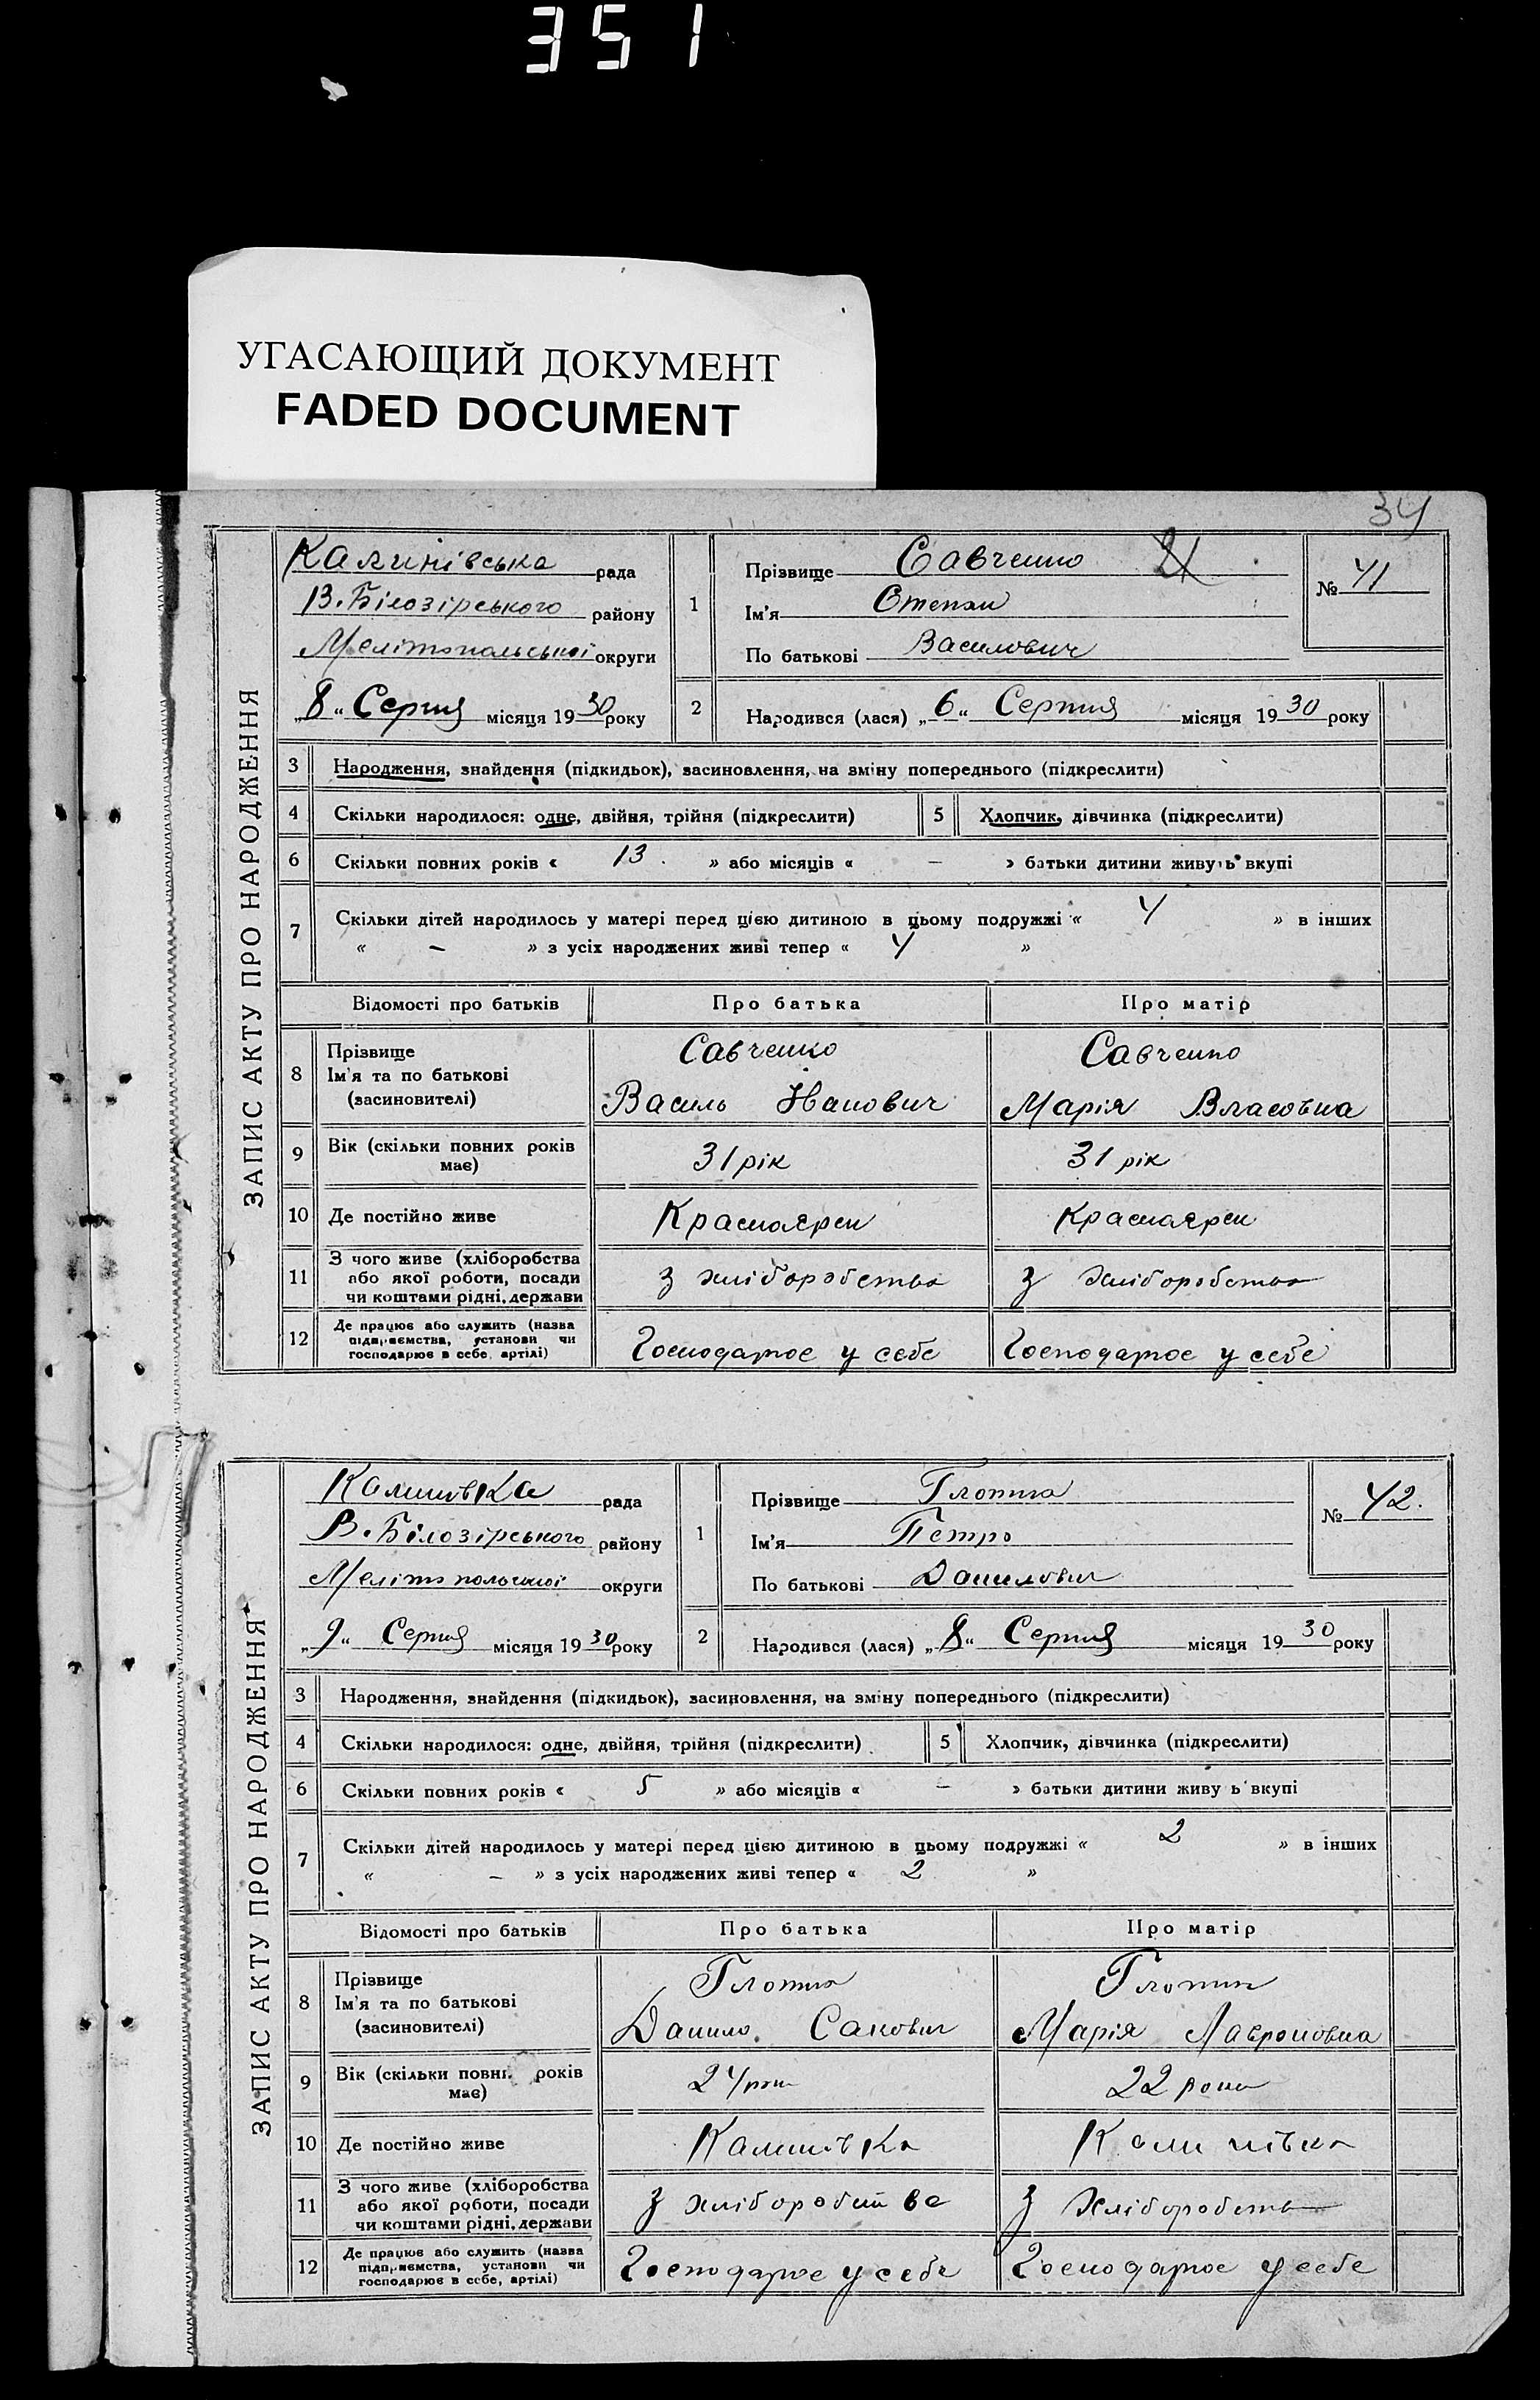 351
УГАСАЮЩИЙ ДОКУМЕНТ
FADED DOCUMENT
34
ЗАПИС АКТУ ПРО НАРОДЖЕННЯ
Калинівська рада
В. Білозірського району
Мелітопольської округи
„8“ Серпня місяця 1930 року
1
Прізвище Савченко
Ім'я Степан
По батькові Василович
№ 41
2
Народився (лася) „6“ Серпня місяця 1930 року
3 Народження, знайдення (підкидьок), засиновлення, на зміну попереднього (підкреслити)
4 Скільки народилося: одне, двійня, трійня (підкреслити) 5 Хлопчик, дівчинка (підкреслити)
6 Скільки повних років « 13 » або місяців « – » батьки дитини живуть вкупі
7 Скільки дітей народилось у матері перед цією дитиною в цьому подружжі « 4 » в інших
« – » з усіх народжених живі тепер « 4 »
Відомості про батьків Про батька Про матір
8 Прізвище
Ім'я та по батькові
(засиновителі)
Савченко
Василь Іванович
Савченко
Марія Власовна
9 Вік (скільки повних років
має)
31 рік 31 рік
10 Де постійно живе
11 З чого живе (хліборобства
або якої роботи, посади
чи коштами рідні, держави
з хліборобства з хліборобства
12 Де працює або служить (назва
підприємства, установи чи
господарює в себе, артілі)
Господарює у себе Господарює у себе
ЗАПИС АКТУ ПРО НАРОДЖЕННЯ
Калинівка рада
В. Білозірського району
Мелітопольської округи
„9“ Серпня місяця 1930 року
1
Прізвище
Ім'я Петро
По батькові Данилович
№ 42.
2
Народився (лася) „8“ Серпня місяця 1930 року
3 Народження, знайдення (підкидьок), засиновлення, на зміну попереднього (підкреслити)
4 Скільки народилося: одне, двійня, трійня (підкреслити) 5 Хлопчик, дівчинка (підкреслити)
6 Скільки повних років « 5 » або місяців « – » батьки дитини живу ь вкупі
7 Скільки дітей народилось у матері перед цією дитиною в цьому подружжі « 2 » в інших
« – » з усіх народжених живі тепер « 2 »
Відомості про батьків Про батька Про матір
8 Прізвище
Ім'я та по батькові
(засиновителі)
Данило
Марія
9 Вік (скільки повних років
має)
24 роки 22 роки
10 Де постійно живе
Калинівка Калинівка
11 З чого живе (хліборобства
або якої роботи, посади
чи коштами рідні, держави
з хліборобства з хліборобства
12 Де працює або служить (назва
підприємства, установи чи
господарює в себе, артілі)
Господарює у себе Господарює у себе